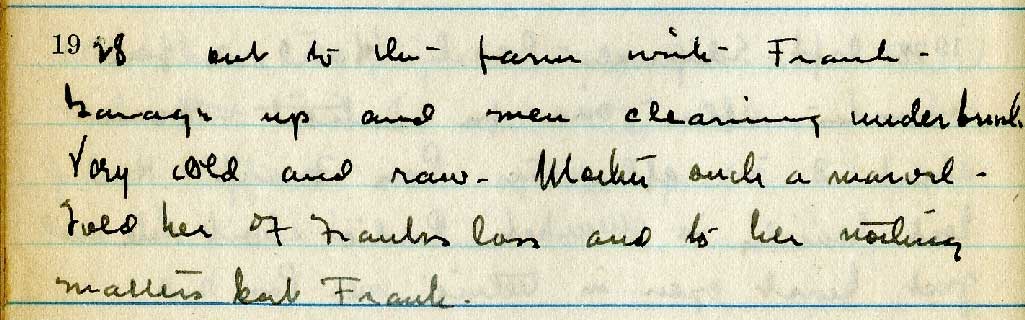 1928 out to the farm with Frank -
Garage up and men clearing underbrush
Very cold and raw - Mother such a marvel -
Told her of Franks loss and to her nothing
matters but Frank.